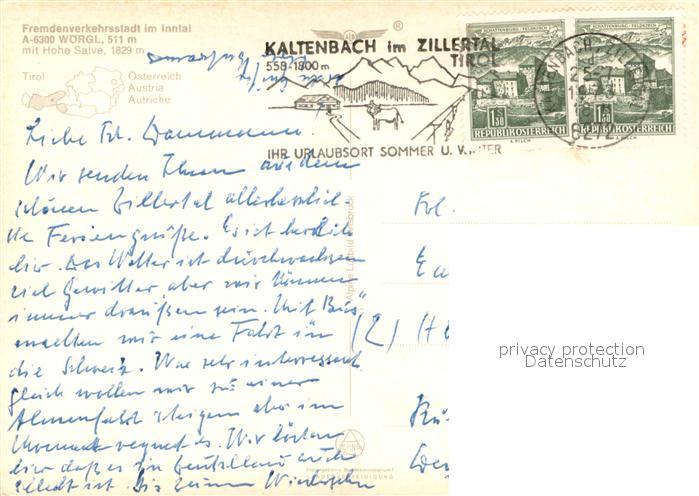 Fremdenverkehrsstadt im Inntal
A-6300 WÖRGL, 511 m
mit Hohe Salve, 1829 m
Tirol
Österreich
Austria
Autriche
KALTENBACH im ZILLERTAL
TIROL
558-1800 m
IHR URLAUBSORT SOMMER U. WINTER
SCHATTENBURG - FELDKIRCH
1.50
REPUBLIK ÖSTERREICH
SCHATTENBURG - FELDKIRCH
1.50
REPUBLIK ÖSTERREICH
Liebe Frl.
Wir senden Ihnen aus dem
schönen Zillertal allerherzlich
ste Feriengrüße. Es ist herrlich
hier. Das Wetter ist durchwachsen
viel Gewitter aber wir können
immer draußen sein. Mit Bus
machten wir eine Fahrt in
die Schweiz. War sehr interessant
gleich wollen wir zu einer
Almenfahrt steigen aber im
Moment regnet es. Wir hörten
hier daß es in Deutschland auch
ist. Bis zum Wiedersehn
Alpine Luftbild Innsbruck
Frl.
(2)
privacy protection
Datenschutz